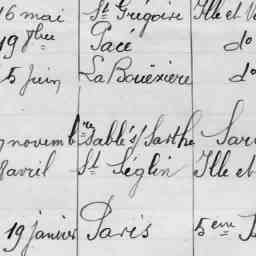 16 mai St Grégoire Ille et V
19 7bre Pacé do
5 Juin La Bouëxiere do
novembre Sablé s/ Sarthe Sar
avril St Séglin Ille et
19 janvier Paris 5eme